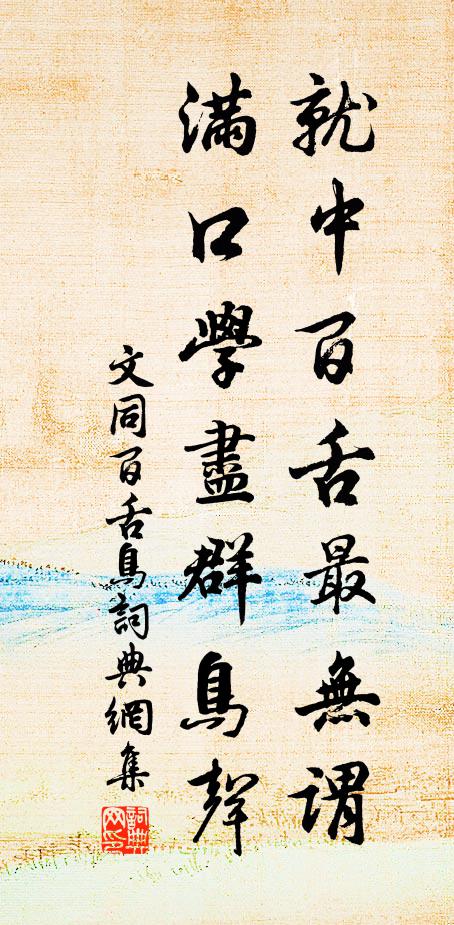 就中百舌最無謂
滿口學盡群鳥聲
文同百舌鳥詞典網集
詞典
网